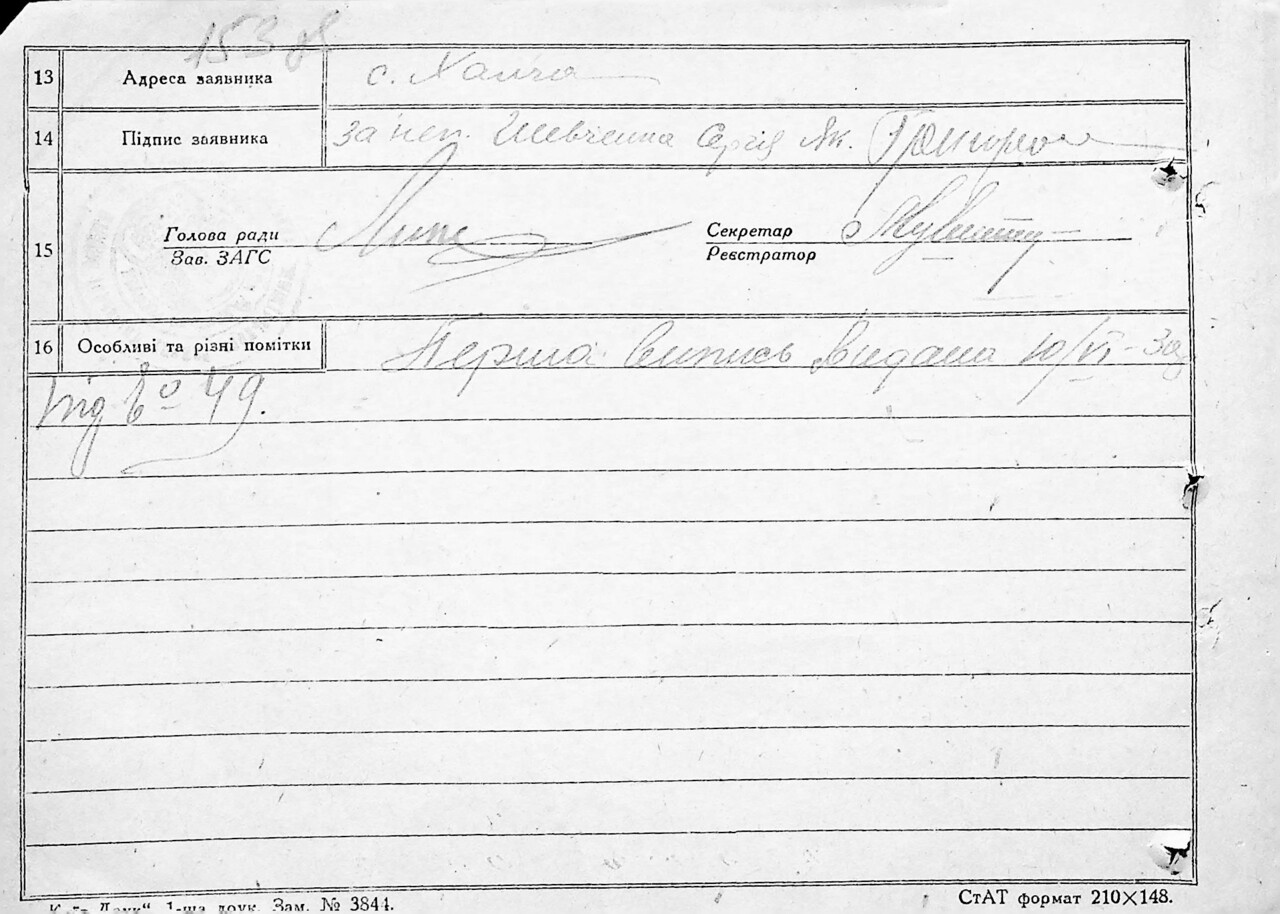 153 зв
13 Адреса заявника с. Хапча
14 Підпис заявника за неп. Шевченка Сергія Як.
15 Голова ради Зав. ЗАГС Секретар Реєстратор
16 Особливі та різні помітки Перша випись видана 10/VI-39
під № 49.
1-ша друк. Зам. № 3844.
СтАТ формат 210×148.